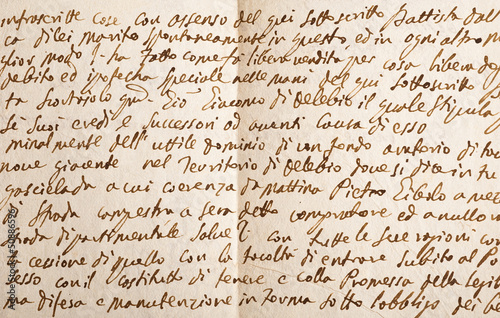 infrascritte cose con assenso del qui sottoscritto Battista
ca di lei marito spontaneamente in questo ed in ogni altro
glior modo ha fatto come fa libera vendita per cosa libera
debito ed ipoteca speciale nelle mani del qui sottoscritto
ta qm. Gio Giacomo di Delebio il quale stipula
se suoi eredi e successori ed aventi causa di esso
minalmente dell'utile dominio di un fondo aratorio di
nove giacente nel Territorio di Delebio dove si dice in
a cui coerenza da mattina Pietro a
Strada campestra a sera detto compratore ed a nullo
strada dipartimentale salve con tutte le sue ragioni
cessione di quello con la facoltà di entrare subito al
esso con il costituto di tenere e colla Promessa della
ma difesa e manutenzione in forma sotto l'obbligo dei